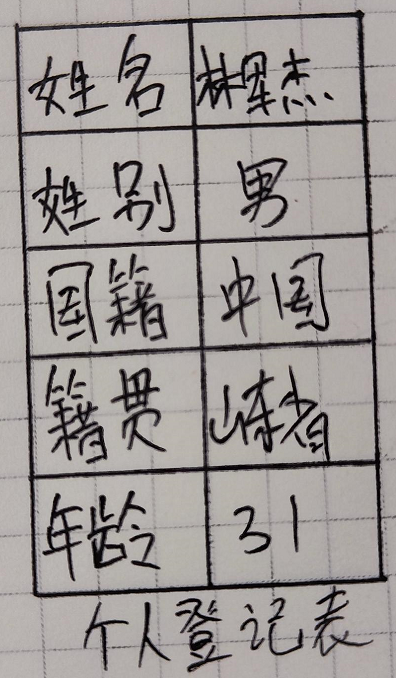 姓名
姓别 男
国籍 中国
籍贯 山东省
年龄 31
个人登记表